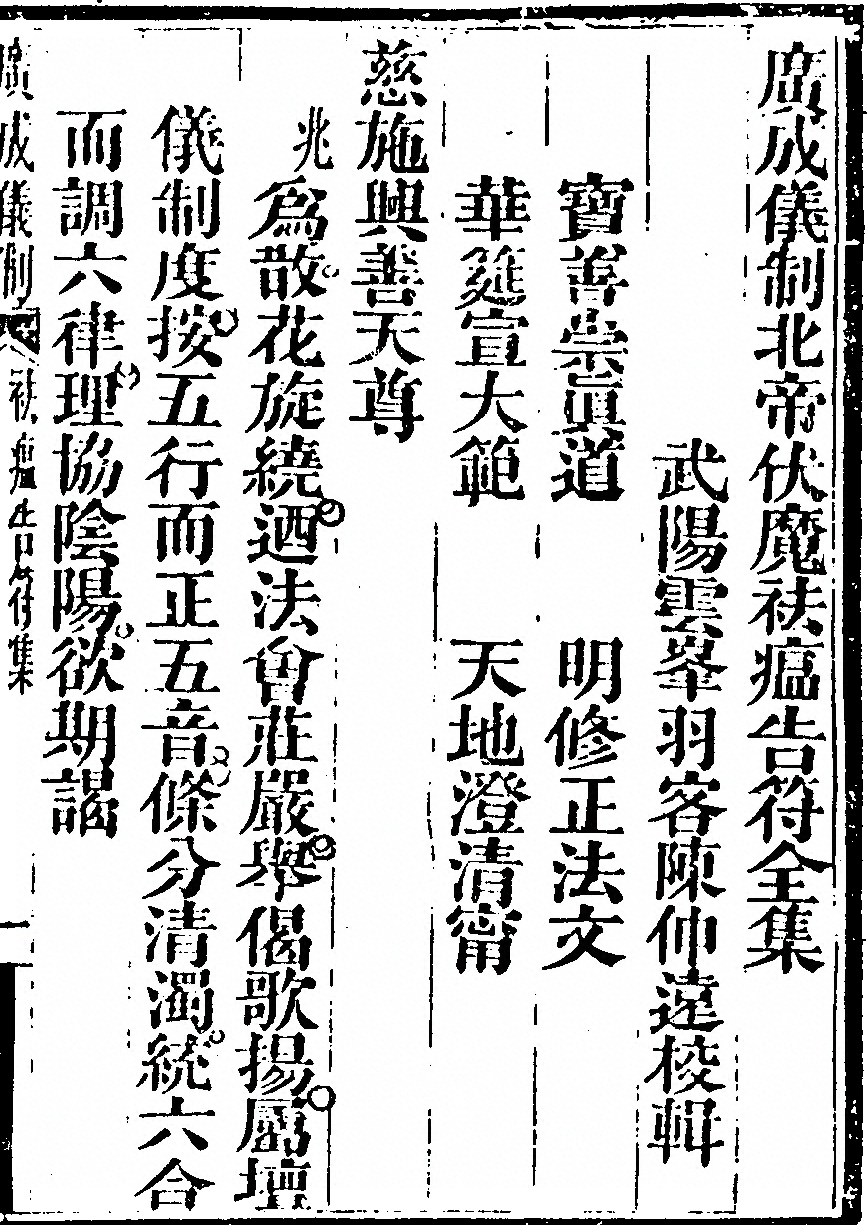 廣成儀制北帝伏魔祛瘟告符全集
武陽雲峯羽客陳仲遠校輯
寶善崇眞道 明修正法文
華筵宣大範 天地澄清甯
慈施興善天尊
兆爲散花旋繞迺法會莊嚴舉偈歌揚屬壇
儀制度按五行而正五音條分清濁統六合
而調六律理協陰陽欲期謁
廣成儀制 祛瘟告符集 一